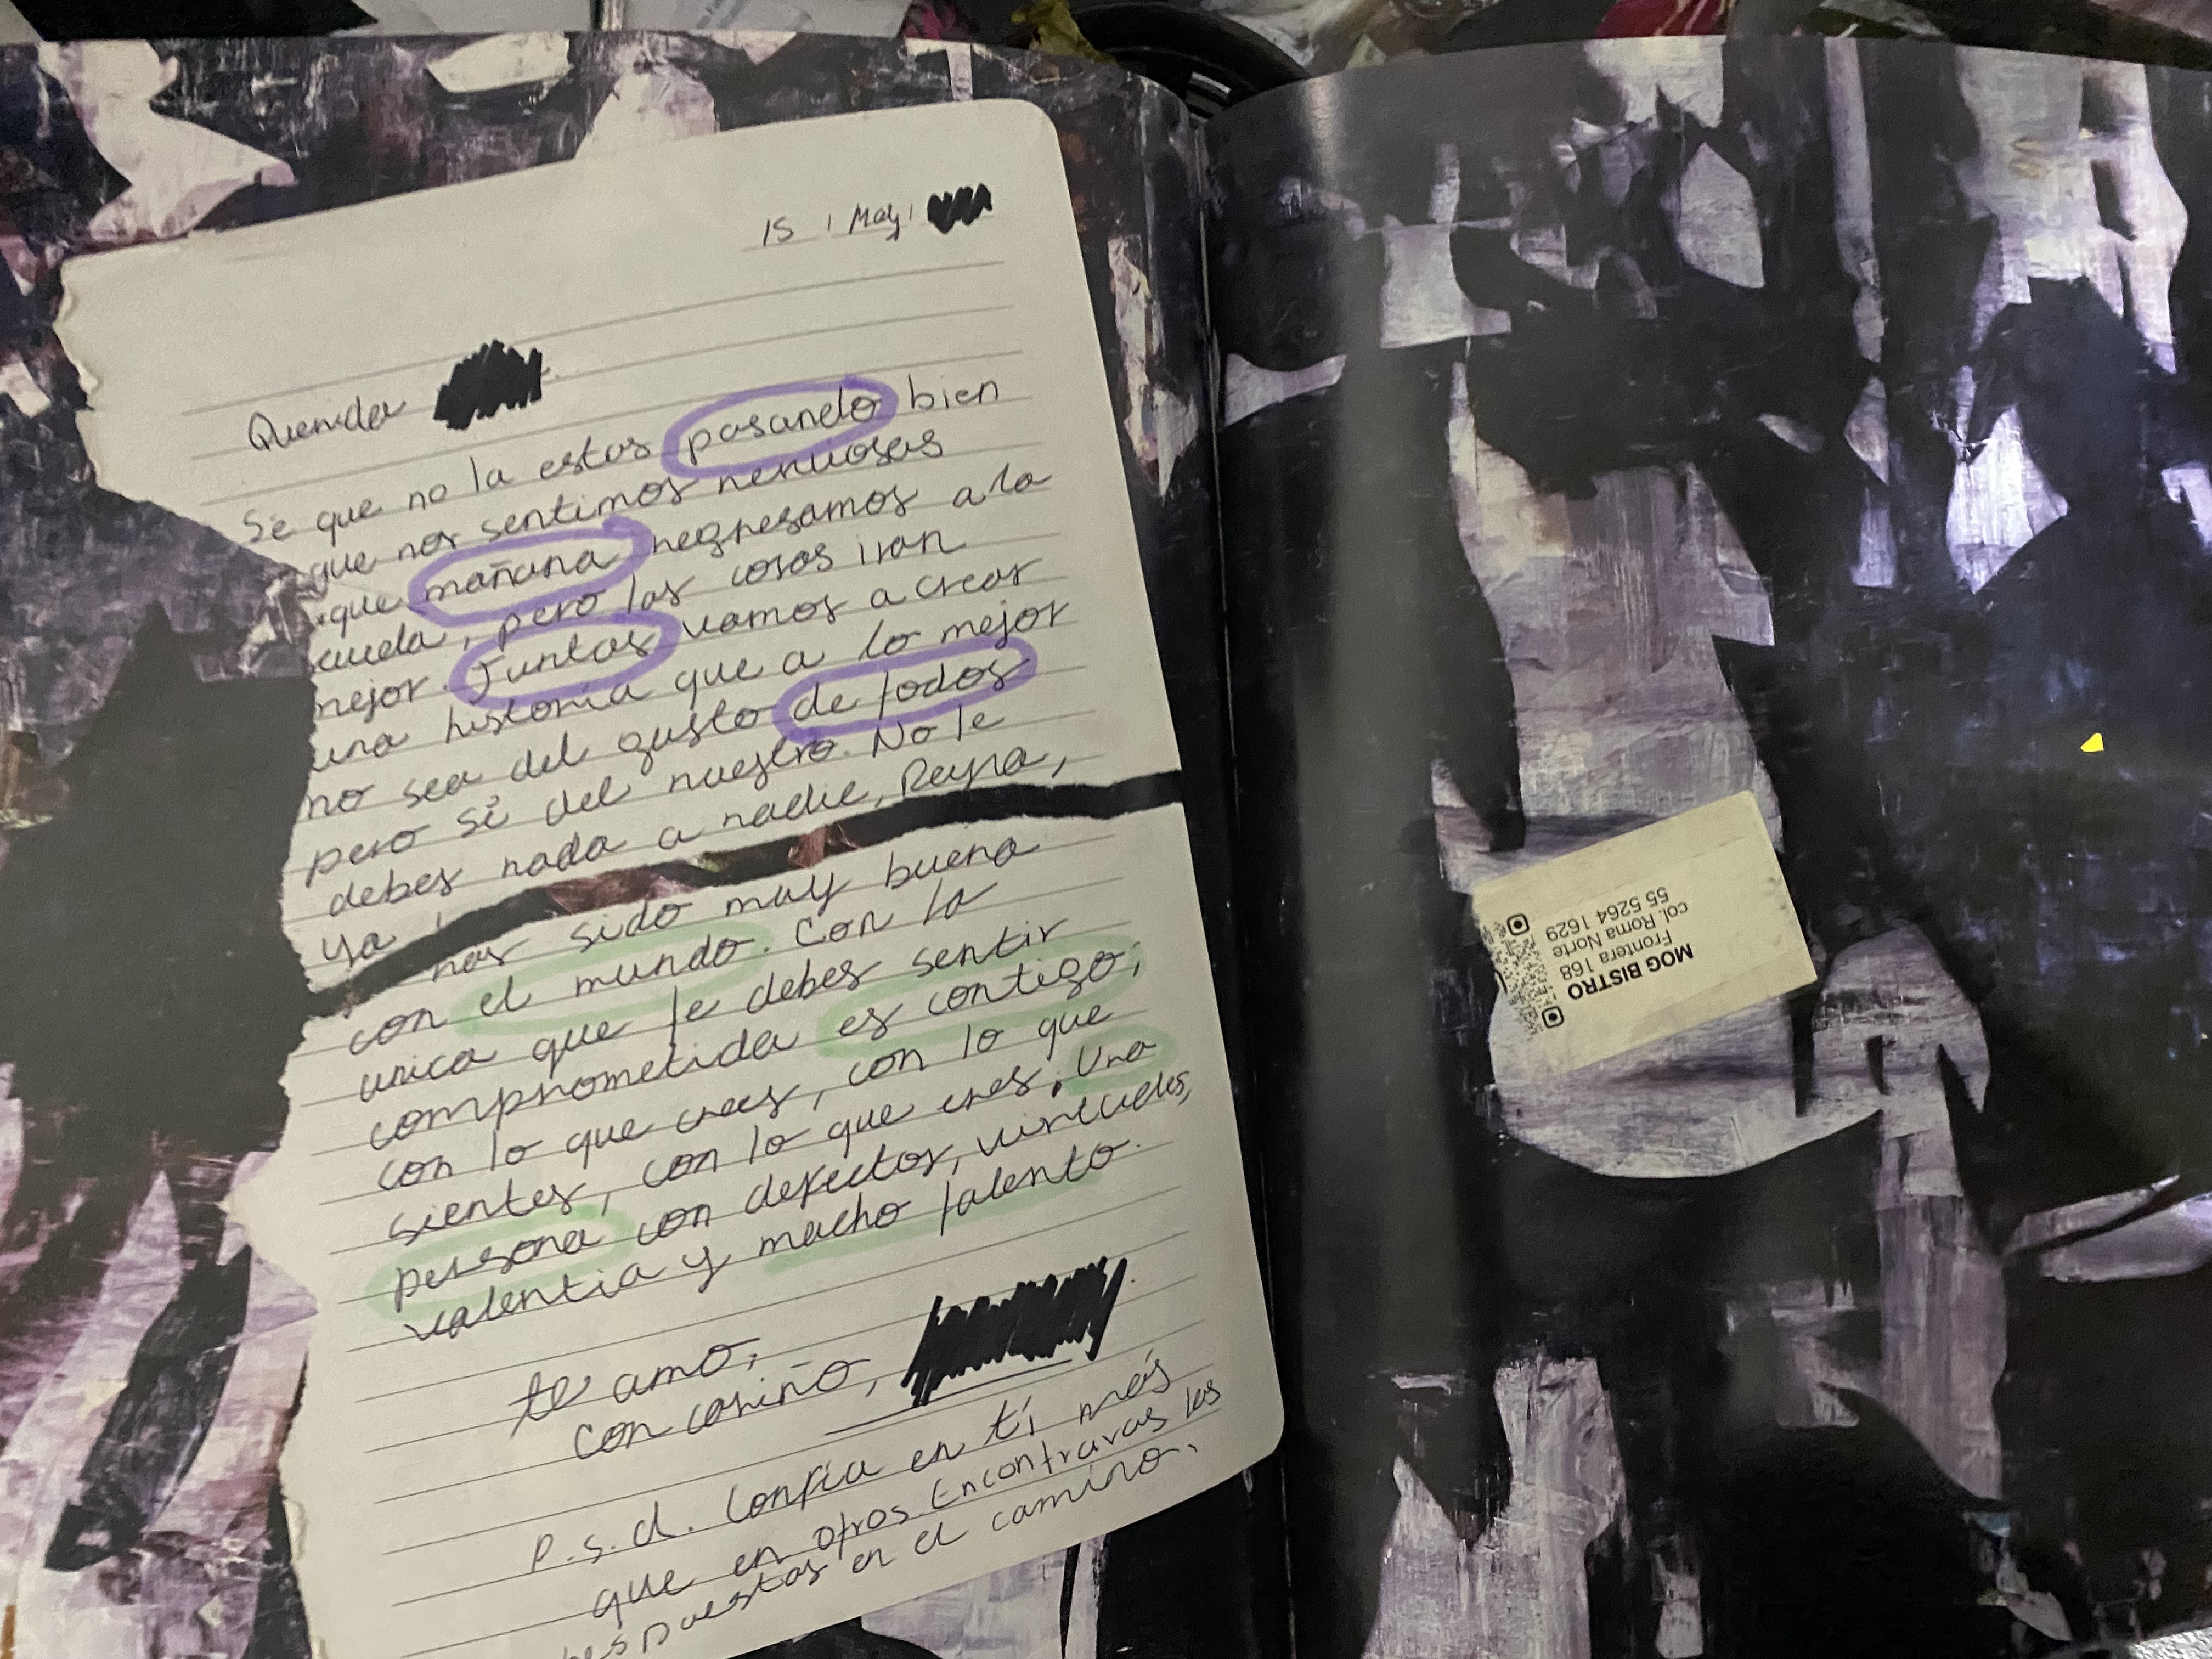 15 / May /
Querida
Sé que no la estas pasando bien
que nos sentimos nerviosas
que mañana regresamos a la
cueda, pero las cosas iran
mejor. Juntas vamos a crear
una historia que a lo mejor
no sea del gusto de todos
pero sí del nuestro. No le
debes nada a nadie, Reyna,
Ya
has sido muy buena
con el mundo. Con la
unica que te debes sentir
comprometida es contigo;
con lo que crees, con lo que
sientes, con lo que eres. Una
persona con defectos, virtudes,
valentia y mucho talento.
te amo,
con cariño,
P.s.d. Confía en tí más
que en otros. Encontraras las
respuestas en el camino.
MOG BISTRO
Frontera 168
col. Roma Norte
55 5264 1629